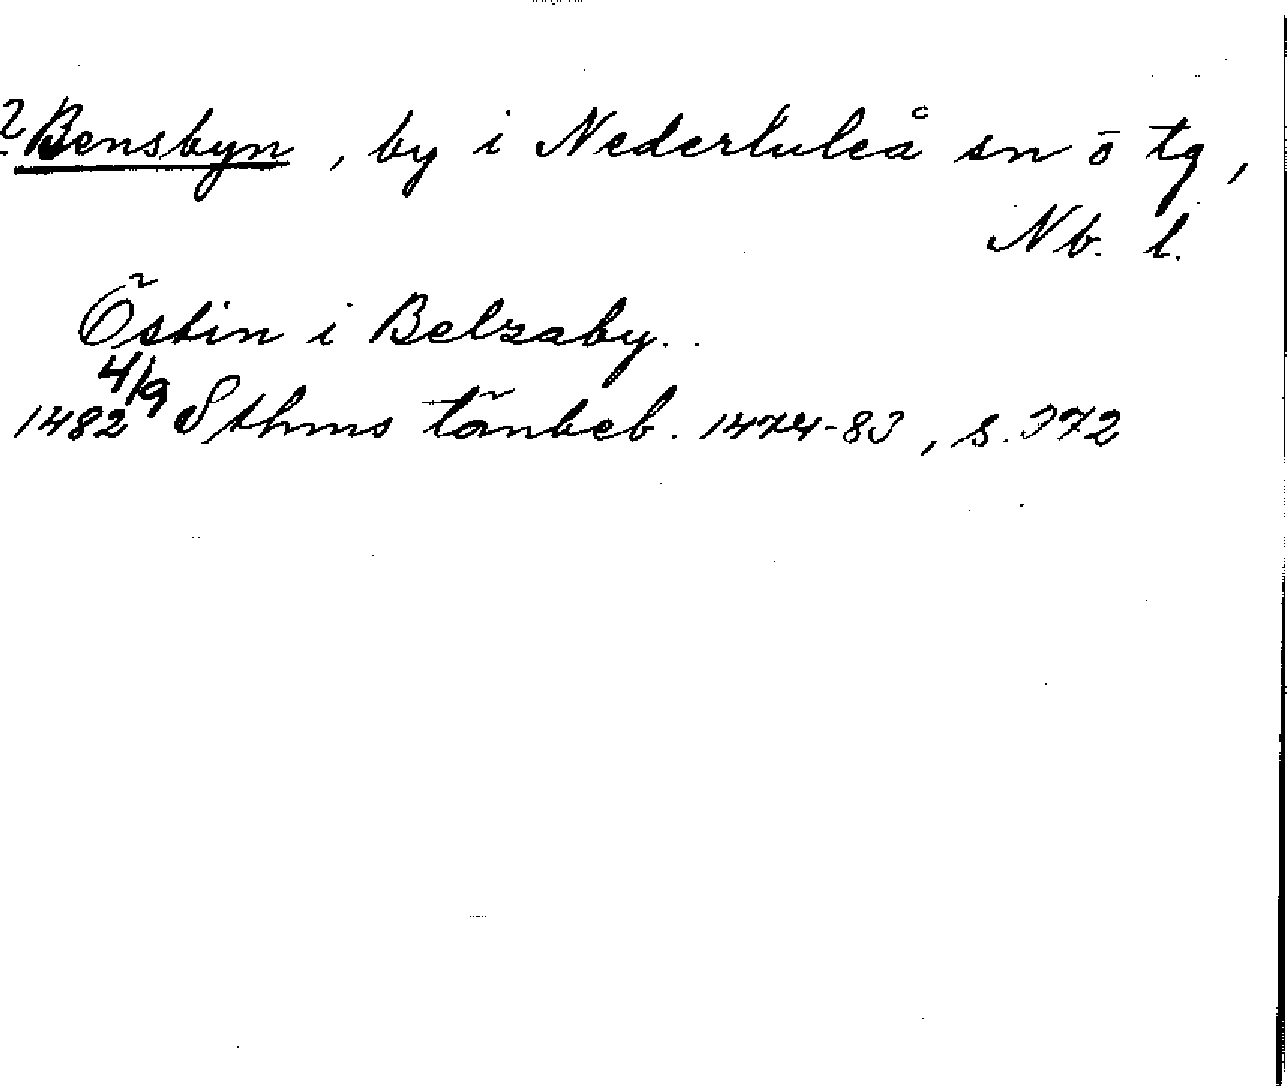 ? Bensbyn, by i Nederluleå sn o tg,
Nb. l.
Östin i Belzaby..
1482 4/9 Sthms tänkeb. 1474-83, s. 372